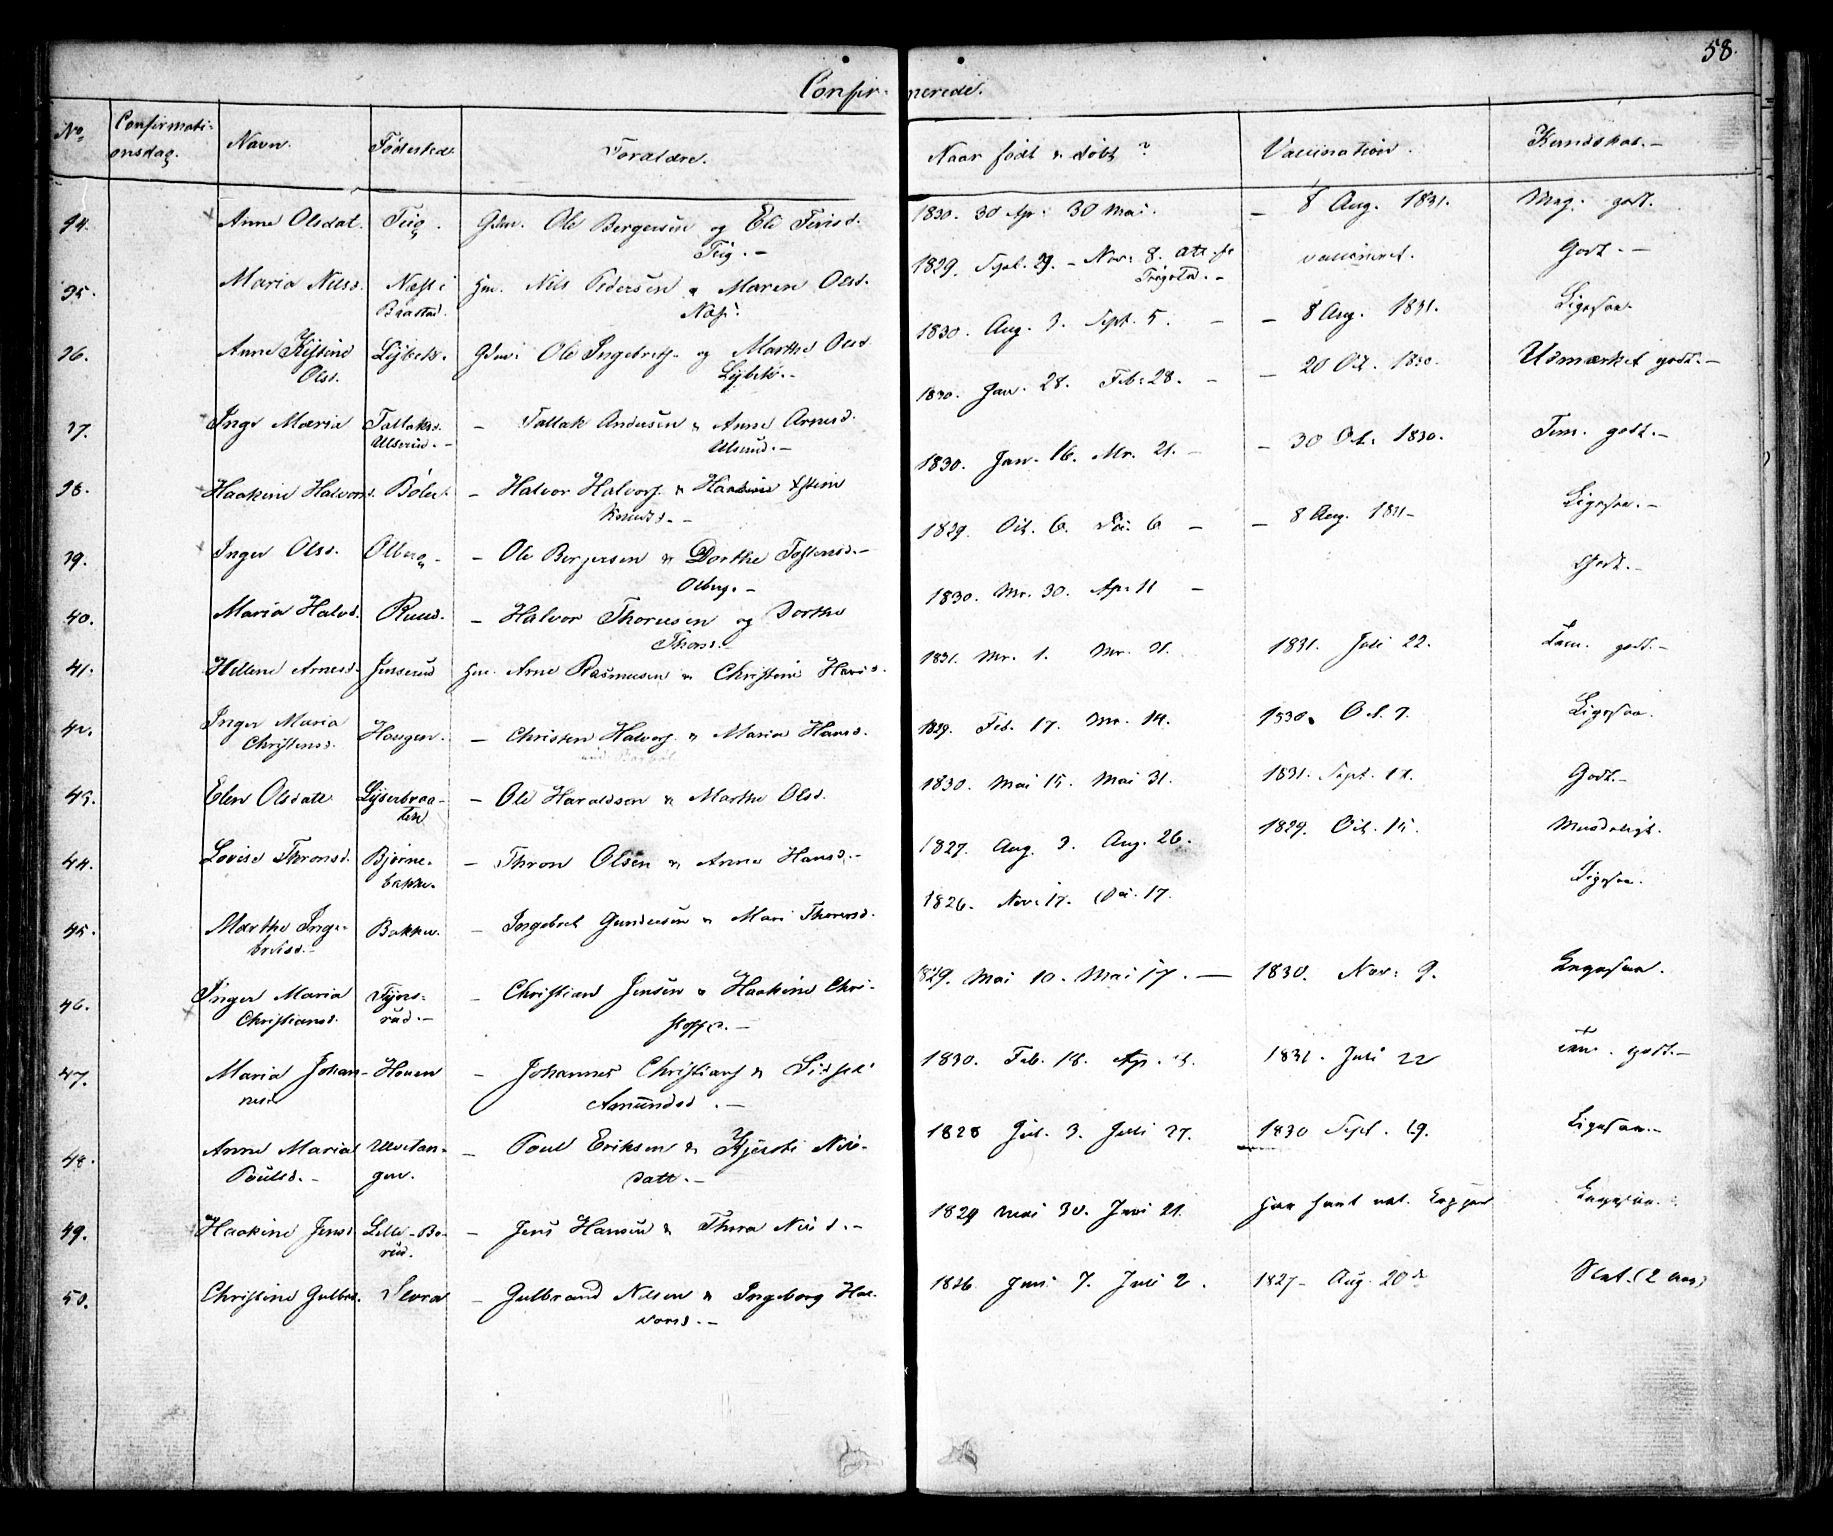 58.
Confirmerede.
No. Confirmationsdag. Navn. Födested Forældre. Naar födt & döbt? Vaccination. Kundskab.
34. Anne Olsdat. Teig. Gdm. Ole Bergersen og Eli Iversd. 1830. 30 Apr. 30 Mai. 8 Aug. 1831. Meg. godt.
Teig.
35. Maria Nilsd. Næss i Hm. Nils Pedersen & Maren Olsd. 1829. Sept. 29. Nov. 8. vaccineret. Godt.
Braastad. Næss.
36. Anne Kistine Lybek. Gdm. Ole Ingebretsen og Marthe Olsd. 1830. Aug. 3. Sept. 5. 8 Aug. 1831. Ligesaa.
Olsd. Lybek.
37. Inge Maria Tallaksd. Tallak Andersen & Anne Arnesd. 1830. Jan. 28. Feb. 28. 20 Oct. 1830. Udmærket godt.
Ulserud. Ulserud.
38. Haakine Halvorsd. Böler. Halvor Halvors. & Haakine 1830. Jan. 16. Mr. 21. 30 Oct. 1830. Tem. godt.
Knudsd.
39. Inger Olsd. Olberg. Ole Bergersen & Dorthe Tostensd. 1829. Oct. 6. Dec. 6 8 Aug. 1831 Ligesaa.
Olberg.
40. Maria Halvd. Ruud. Halvor Thoresen og Dorthe 1830. Mr. 30. Apr. 11 Godt.
Thorsd.
41. Hellene Arnesd. Jonserud Hm. Arne Rasmusen & Christine Hansd. 1831. Mr. 1. Mr. 21. 1831. Juli 22. Tem. godt.
42. Inger Maria Haugen. Christen Halvors. & Maria Hansd. 1829. Feb. 17. Mr. 14. 1830. Oct. 7. Ligesaa.
Christensd.
43. Elen Olsdatt. Lyserbraaten Ole Haraldsen & Marthe Olsd. 1830. Mai 15. Mai 31. 1831. Sept. 17. Godt.
44. Lovise Thronsd. Björnebakke. Thron Olsen & Anne Hansd. 1827. Aug. 3. Aug. 26. 1829. Oct. 15. Maadeligt.
45. Marthe Ingebretsd. Bakken. Ingebret Gundersen & Mari Thoresd. 1826. Nov. 17. Dec. 17. Ligesaa.
46. Inger Maria Christian Jensen & Haakine Christoffd. 1829. Mai 10. Mai 17. 1830. Nov. 9. Ligesaa.
Christiansd.
47. Maria Johannesd. Hoven Johannes Christians. & Sidsel 1830. Feb. 18. Apr. 1831. Juli 22 Tem. godt.
Amundsd.
48. Anne Maria Ulvetangen. Poul Eriksen & Kjersti Nilsdatt. 1828 Jul. 3. Juli 27. 1830 Sept. 19. Ligesaa.
Poulsd.
49. Haakine Jensd. Lille-Borud. Jens Hansen & Thora Nilsd. 1829 Mai 30. Juni 21. har havt nat. Kopper Ligesaa.
50. Christine Gulbrd. Skora Gulbrand Nilsen & Ingeborg Halvorsd. 1826. Juni 7. Juli 2. 1827 Aug. 20 Slet.